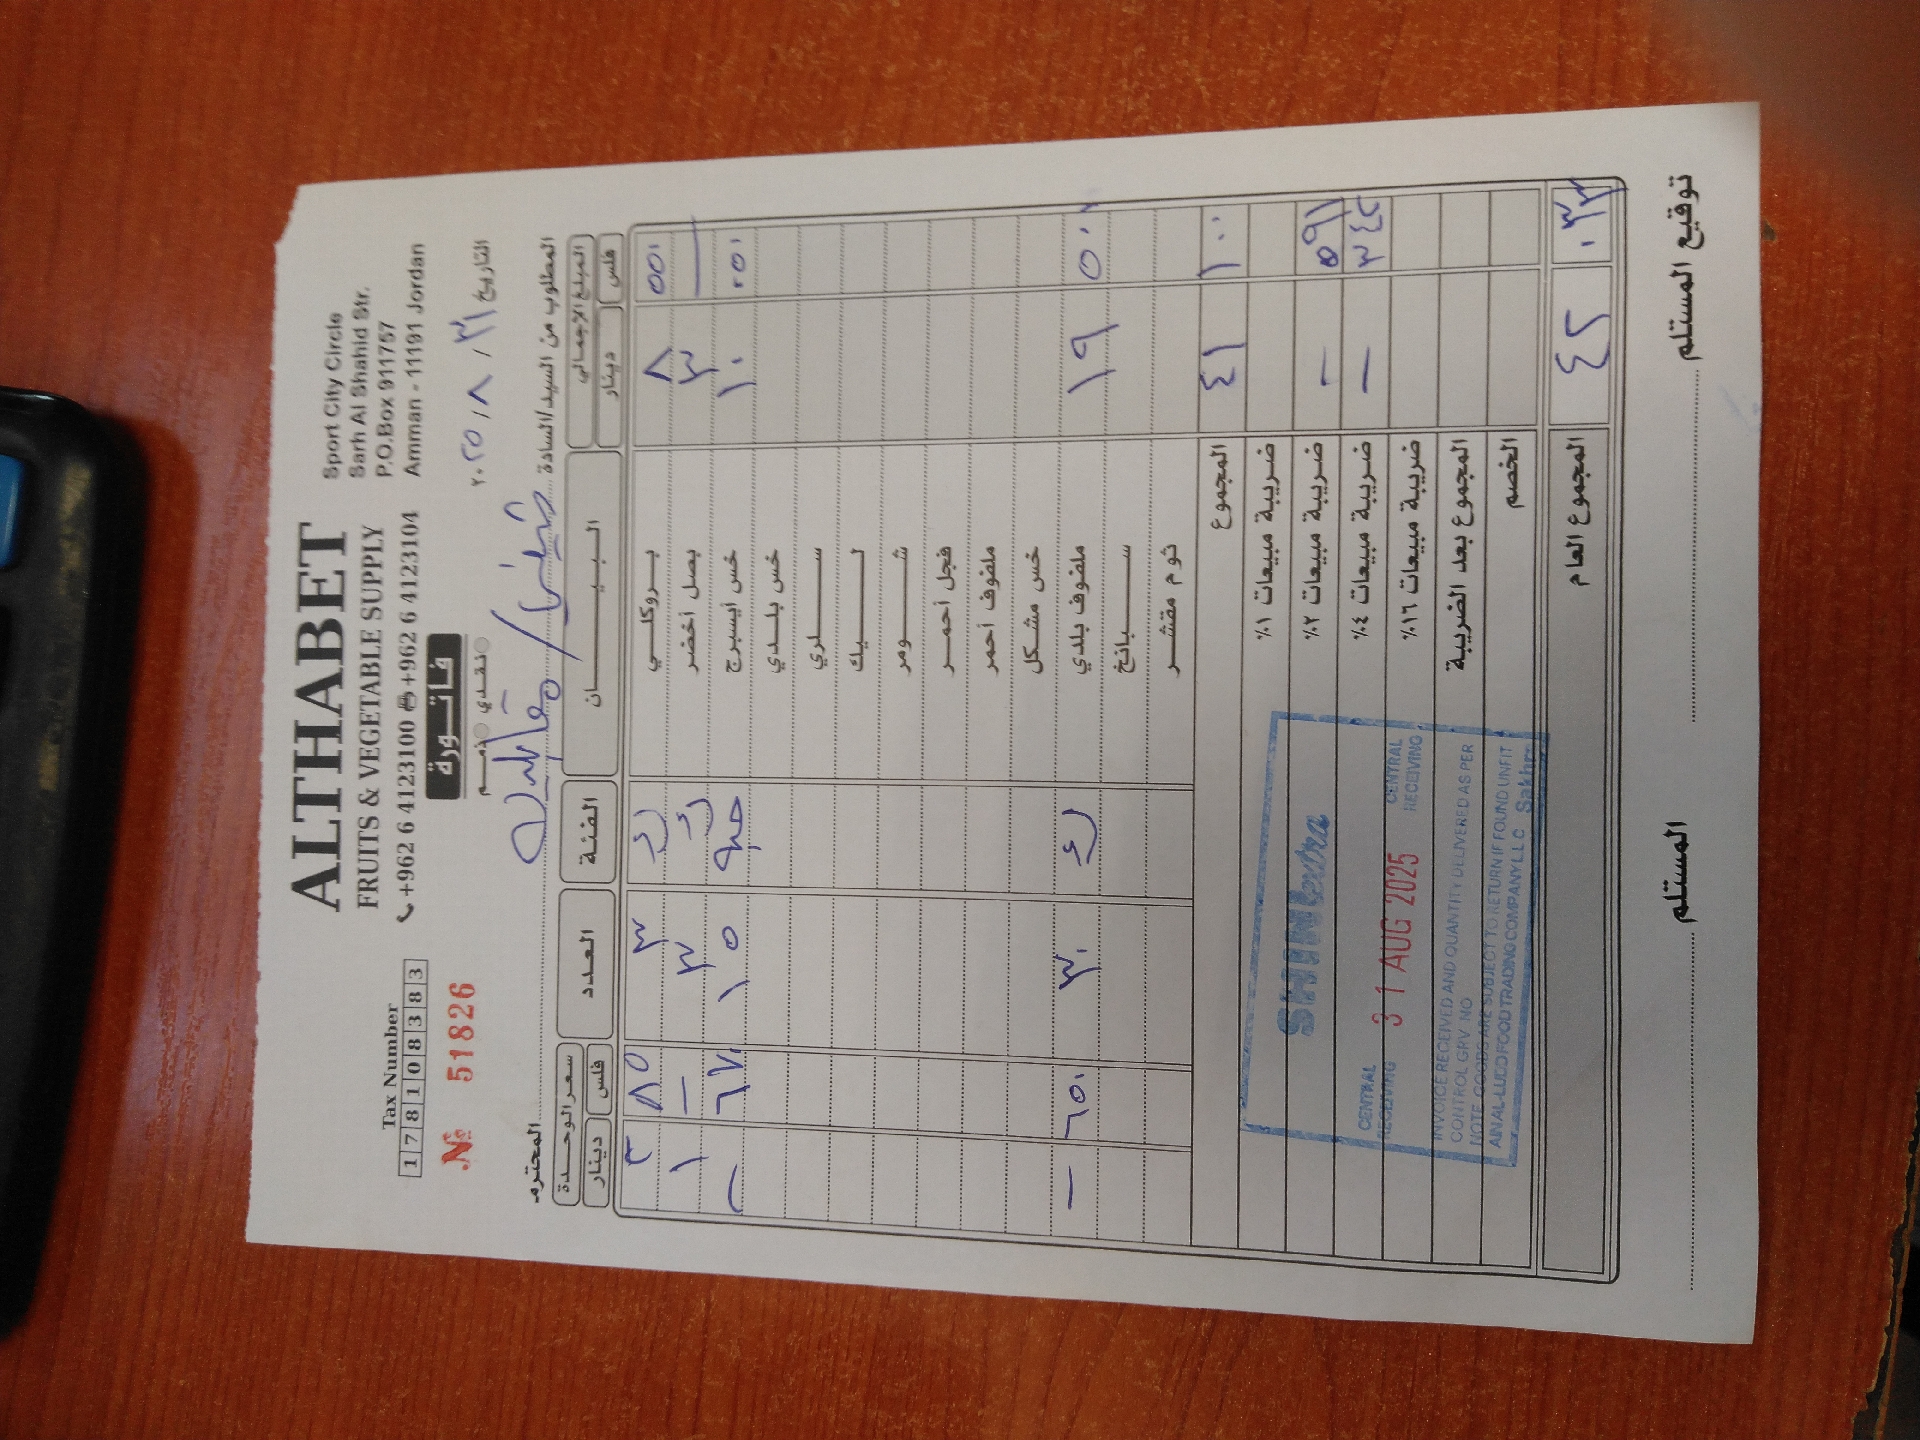 ALTHABET
FRUITS & VEGETABLE SUPPLY
+962 6 4123100 +962 6 4123104
Sport City Circle
Sarh Al Shahid Str.
P.O.Box 911757
Amman - 11191 Jordan
Tax Number
178108383
№ 51826
فاتورة
نقدي ذمم
التاريخ ٣١ / ٨ / ٢٠٢٥
المطلوب من السيد/السادة المحترم
المبلغ الإجمالي البيان الفئة العدد سعر الوحدة
فلس دينار فلس دينار
٥٥١ ٨ بروكلي ٣ ٨٥ ٢
٣ بصل أخضر ٣ - ١
٠٥١ ١٠ خس أيسبرج حبه ١٥ ٦٧٠ -
خس بلدي
سلري
ليك
شومر
فجل أحمر
ملفوف أحمر
خس مشكل
٥٠٠ ١٩ ملفوف بلدي ٣٠ ٦٥٠ -
سبانخ
ثوم مقشر
١٠٠ ٤١ المجموع
ضريبة مبيعات ١٪
٥٩١ - ضريبة مبيعات ٢٪
٣٤٢ - ضريبة مبيعات ٤٪
ضريبة مبيعات ١٦٪
المجموع بعد الضريبة
الخصم
٠٣٣ ٤٢ المجموع العام
CENTRAL RECEIVING
3 1 AUG 2025
CENTRAL RECEIVING
INVOICE RECEIVED AND QUANTITY DELIVERED AS PER
CONTROL GRV NO
NOTE GOODS ARE SUBJECT TO RETURN IF FOUND UNFIT
COMPANY L L C Sakhr
المستلم توقيع المستلم